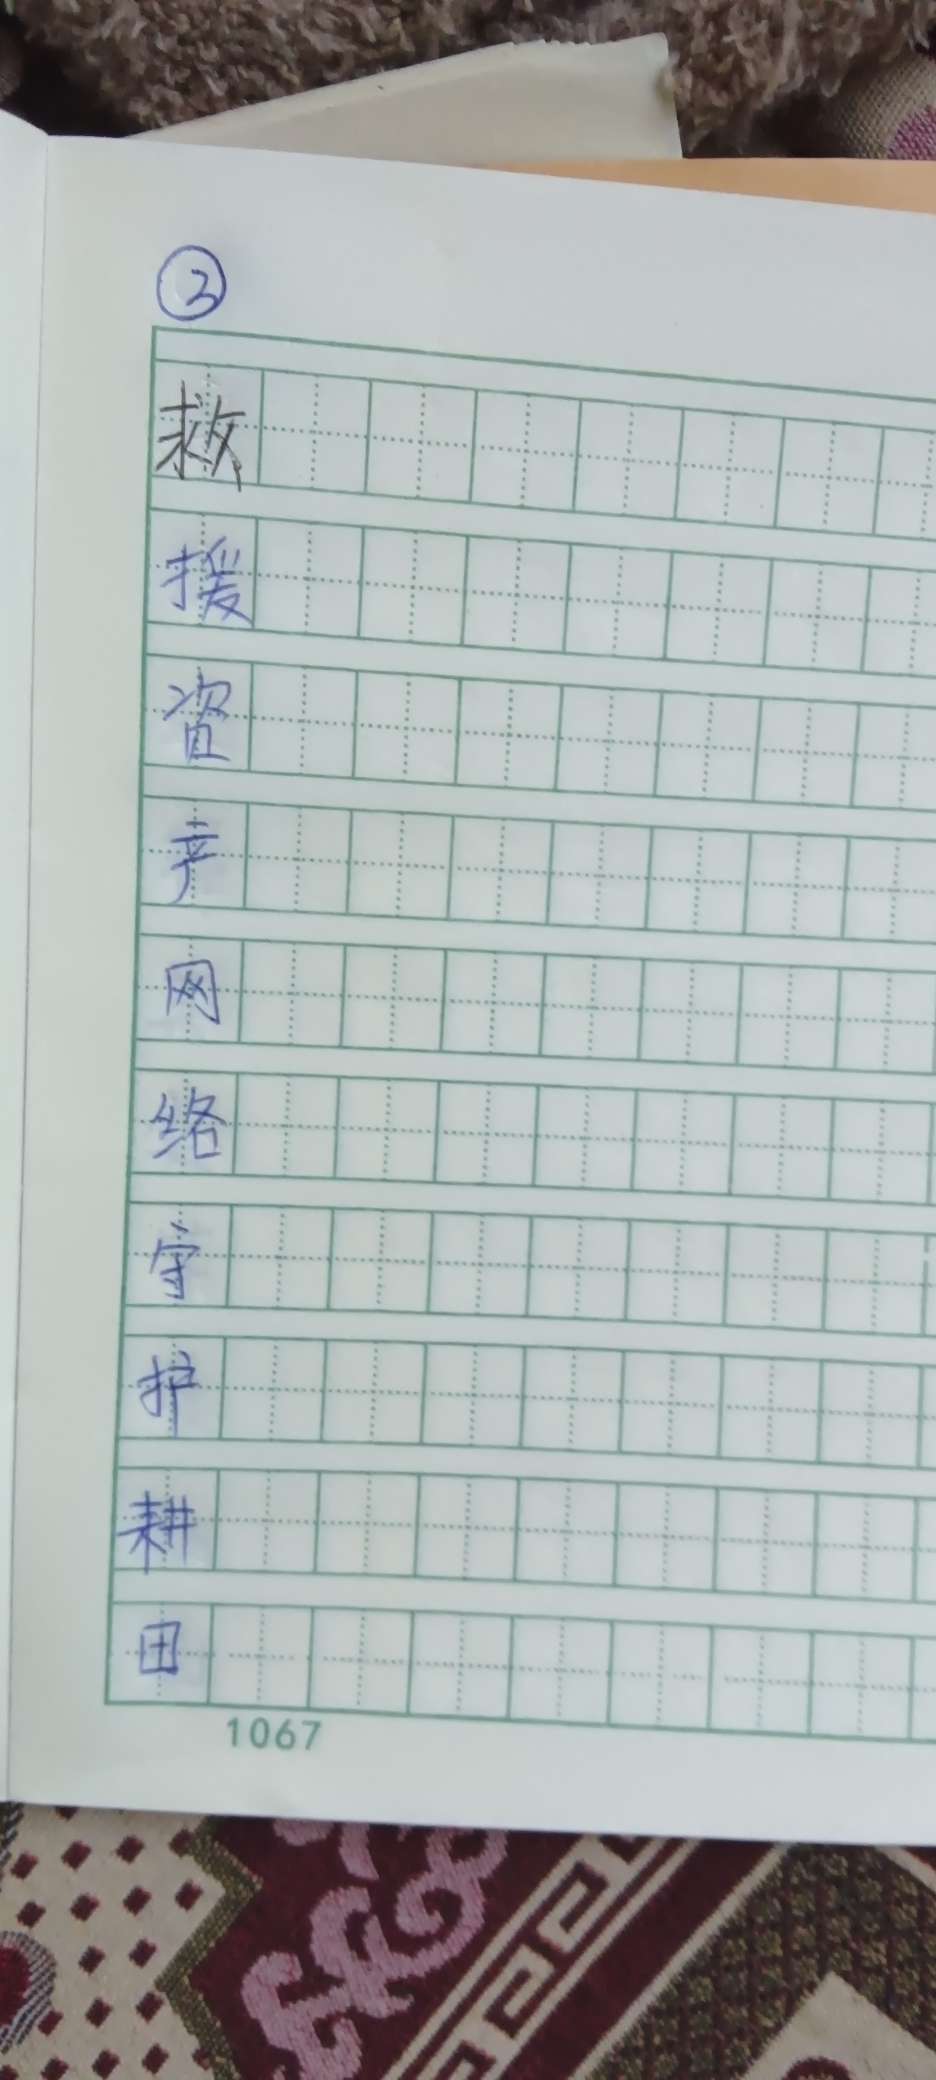 ②
救
援
资
产
网
络
守
护
耕
田
1067